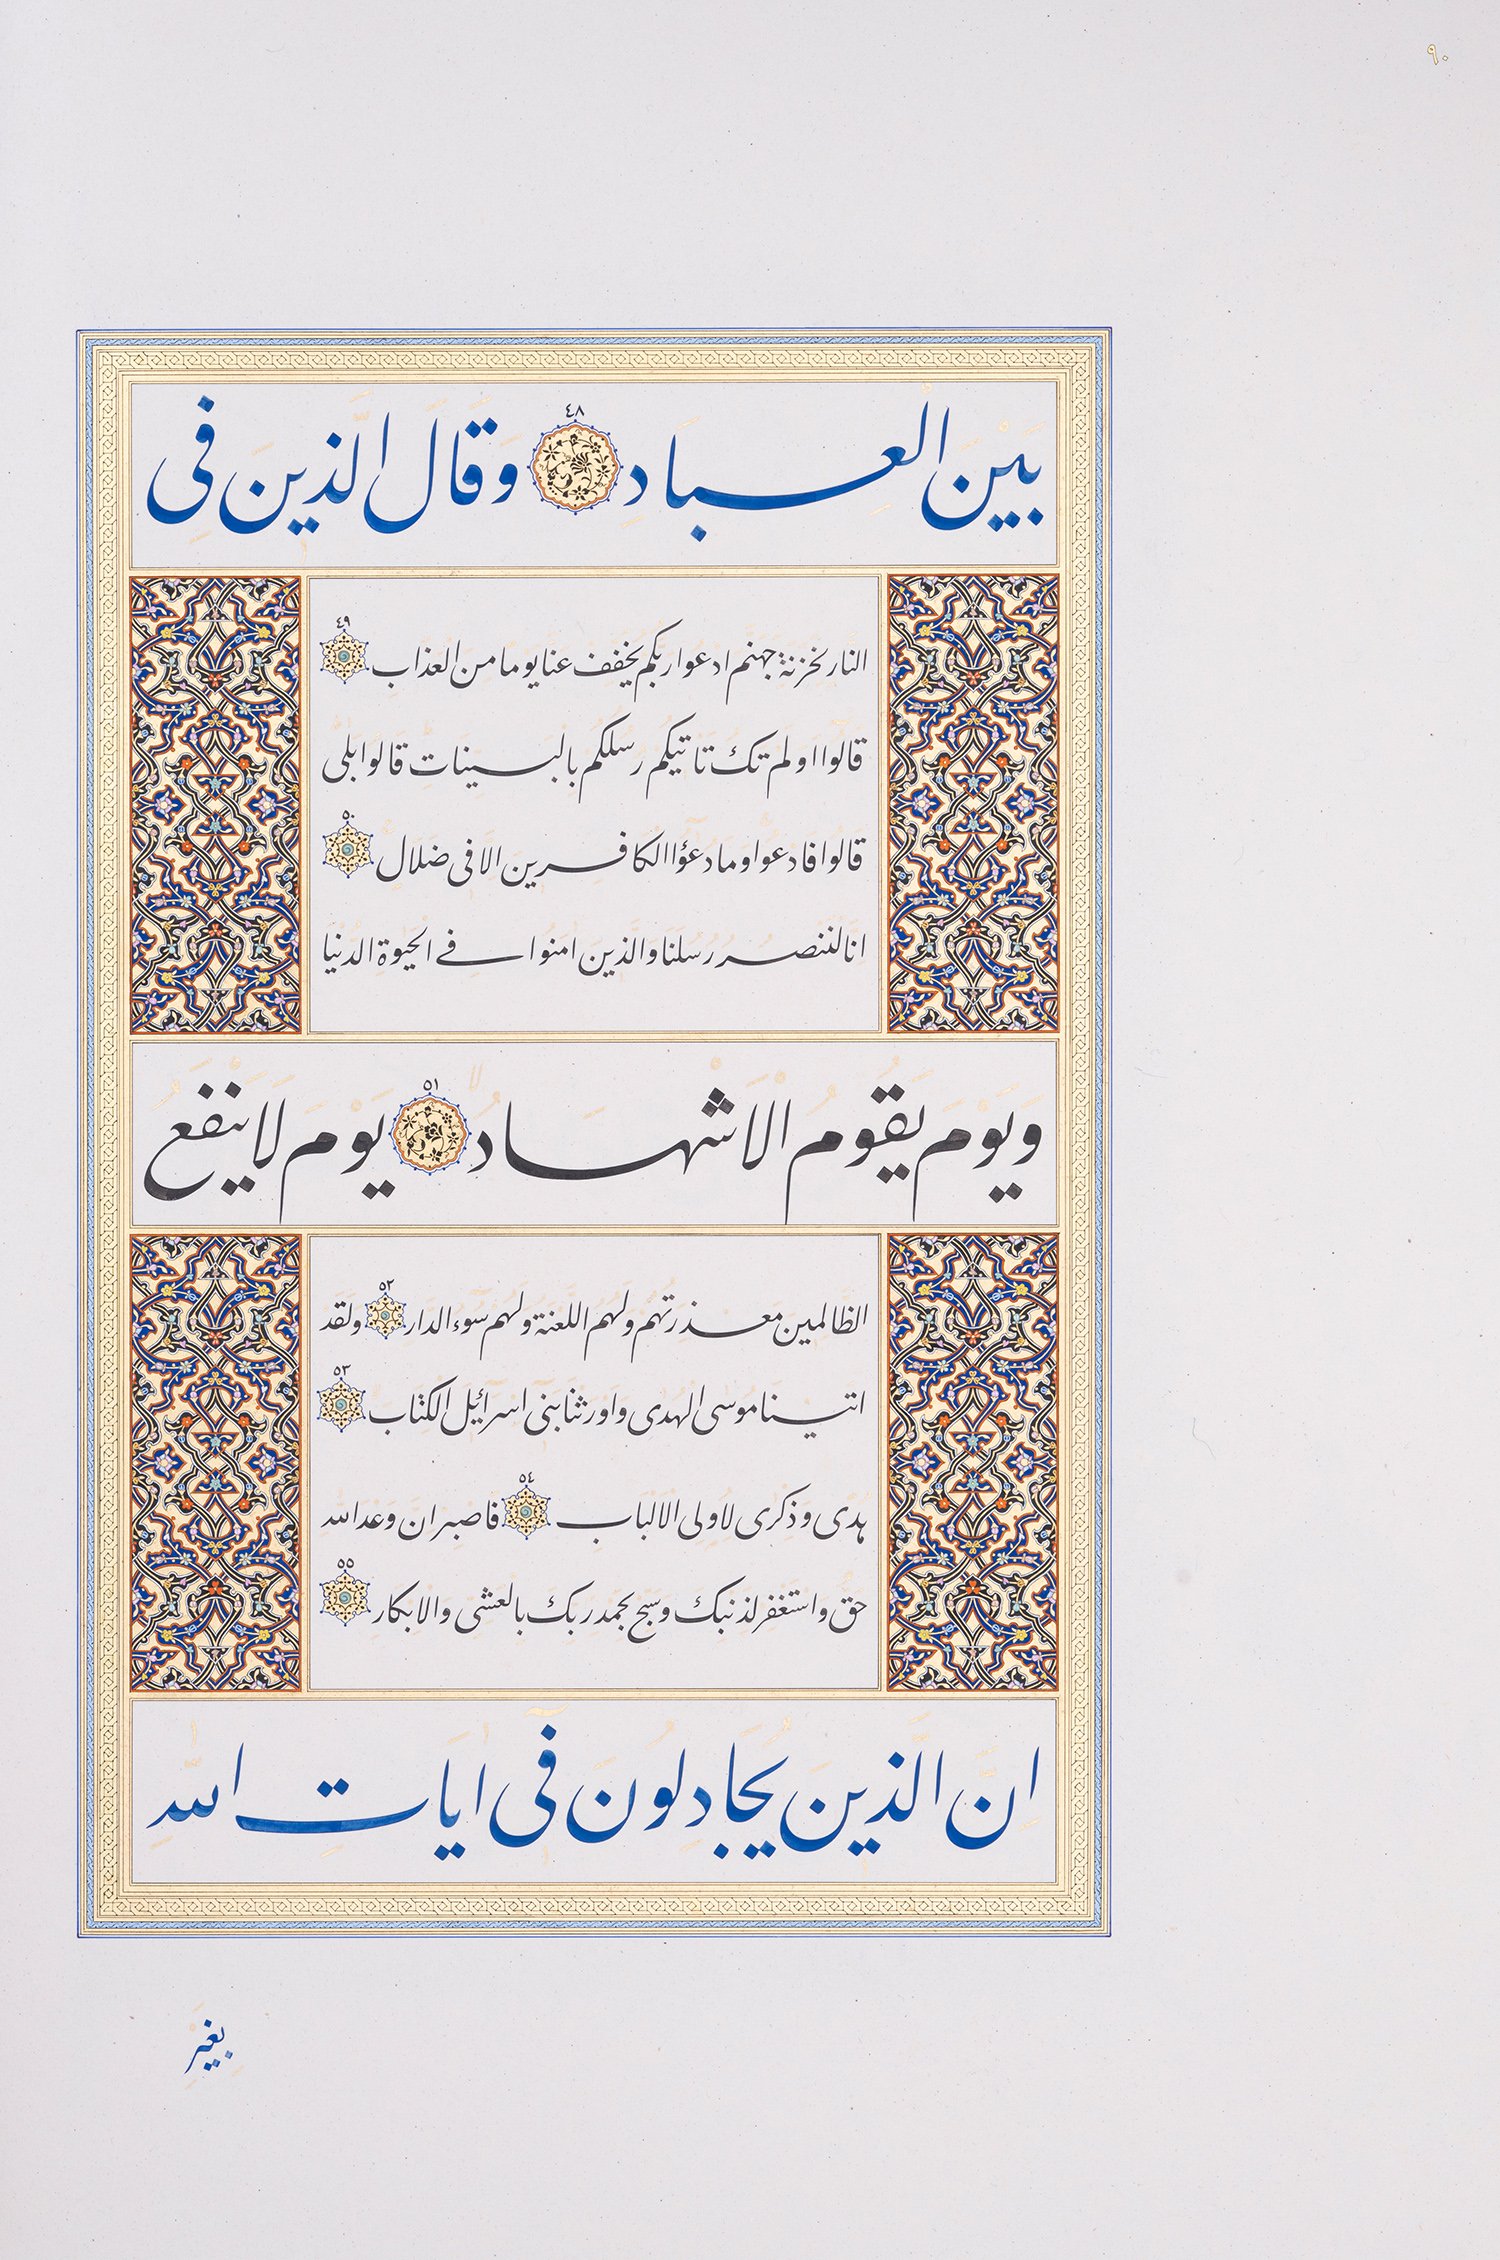 ٩٠
بَيْنَ الْعِبَادِ ٤٨ وَقَالَ الَّذينَ فِى
النار لخزنة جهنم ادعوا ربكم يخفف عنا يوما من العذاب ٤٩
قالوا اولم تك تاتيكم رسلكم بالبينات قالوا بلى
قالوا فادعوا وما دعؤا الكافرين الا فى ضلال ٥٠
انا لننصر رسلنا والذين امنوا فى الحيوة الدنيا
وَيَوْمَ يَقُومُ الْاَشْهَادُ ٥١ يَوْمَ لَا يَنْفَعُ
الظالمين معذرتهم ولهم اللعنة ولهم سوء الدار ٥٢ ولقد
اتينا موسى الهدى واورثنا بنى اسرآئيل الكتاب ٥٣
هدى وذكرى لاولى الالباب ٥٤ فاصبر ان وعد الله
حق واستغفر لذنبك وسبح بحمد ربك بالعشى والابكار ٥٥
اِنَّ الَّذينَ يُجَادِلُونَ فىٓ ايَاتِ اللّٰهِ
بِغَيْرِ